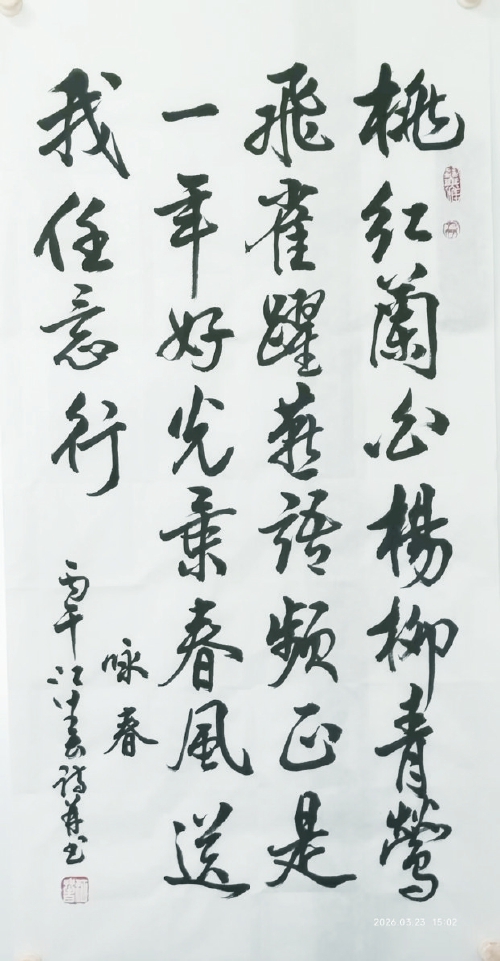 桃红蘭白楊柳青鶯
飛雀躍燕語頻正是
一年好光景春風送
我任意行
咏春
丙午江诗并书
2026.03.23 15:02